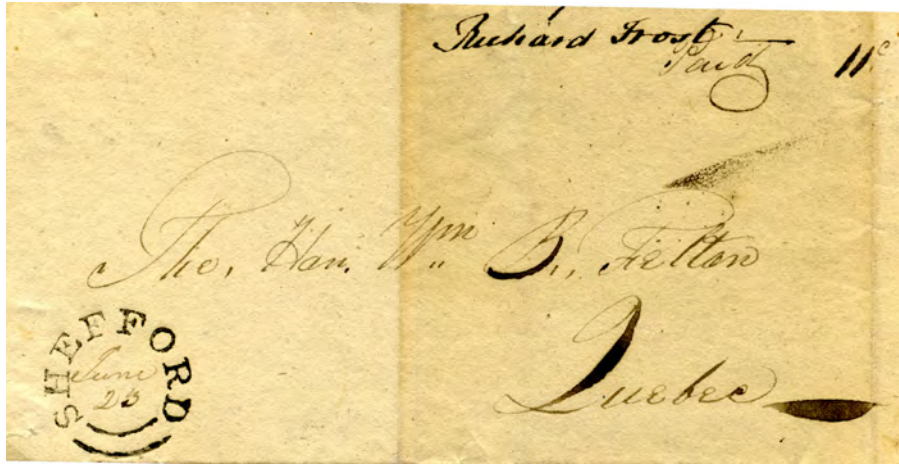 Richard Frost
Paid 11c
The, Hon. Wm B., Felton
Quebec
SHEFFORD
June
23